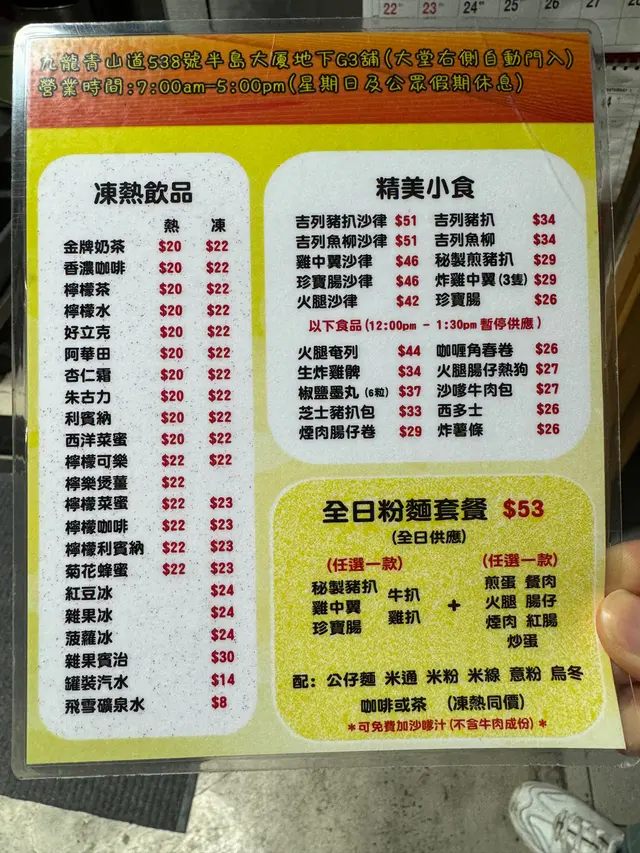 22 23 24 25 26 27
九龍青山道538號半島大厦地下G3舖(大堂右側自動門入)
營業時間:7:00am-5:00pm(星期日及公眾假期休息)
凍熱飲品
熱 凍
金牌奶茶 $20 $22
香濃咖啡 $20 $22
檸檬茶 $20 $22
檸檬水 $20 $22
好立克 $20 $22
阿華田 $20 $22
杏仁霜 $20 $22
朱古力 $20 $22
利賓納 $20 $22
西洋菜蜜 $20 $22
檸檬可樂 $22 $22
檸樂煲薑 $22
檸檬菜蜜 $22 $23
檸檬咖啡 $22 $23
檸檬利賓納 $22 $23
菊花蜂蜜 $22 $23
紅豆冰 $24
雜果冰 $24
菠蘿冰 $24
雜果賓治 $30
罐裝汽水 $14
飛雪礦泉水 $8
精美小食
吉列豬扒沙律 $51 吉列豬扒 $34
吉列魚柳沙律 $51 吉列魚柳 $34
雞中翼沙律 $46 秘製煎豬扒 $29
珍寶腸沙律 $46 炸雞中翼(3隻) $29
火腿沙律 $42 珍寶腸 $26
以下食品(12:00pm - 1:30pm暫停供應)
火腿奄列 $44 咖喱角春卷 $26
生炸雞髀 $34 火腿腸仔熱狗 $27
椒鹽墨丸(6粒) $37 沙嗲牛肉包 $27
芝士豬扒包 $33 西多士 $26
煙肉腸仔卷 $29 炸薯條 $26
全日粉麵套餐 $53
(全日供應)
(任選一款) (任選一款)
秘製豬扒 牛扒 煎蛋 餐肉
雞中翼 雞扒 + 火腿 腸仔
珍寶腸 煙肉 紅腸
炒蛋
配: 公仔麵 米通 米粉 米線 意粉 烏冬
咖啡或茶 (凍熱同價)
*可免費加沙嗲汁(不含牛肉成份)*